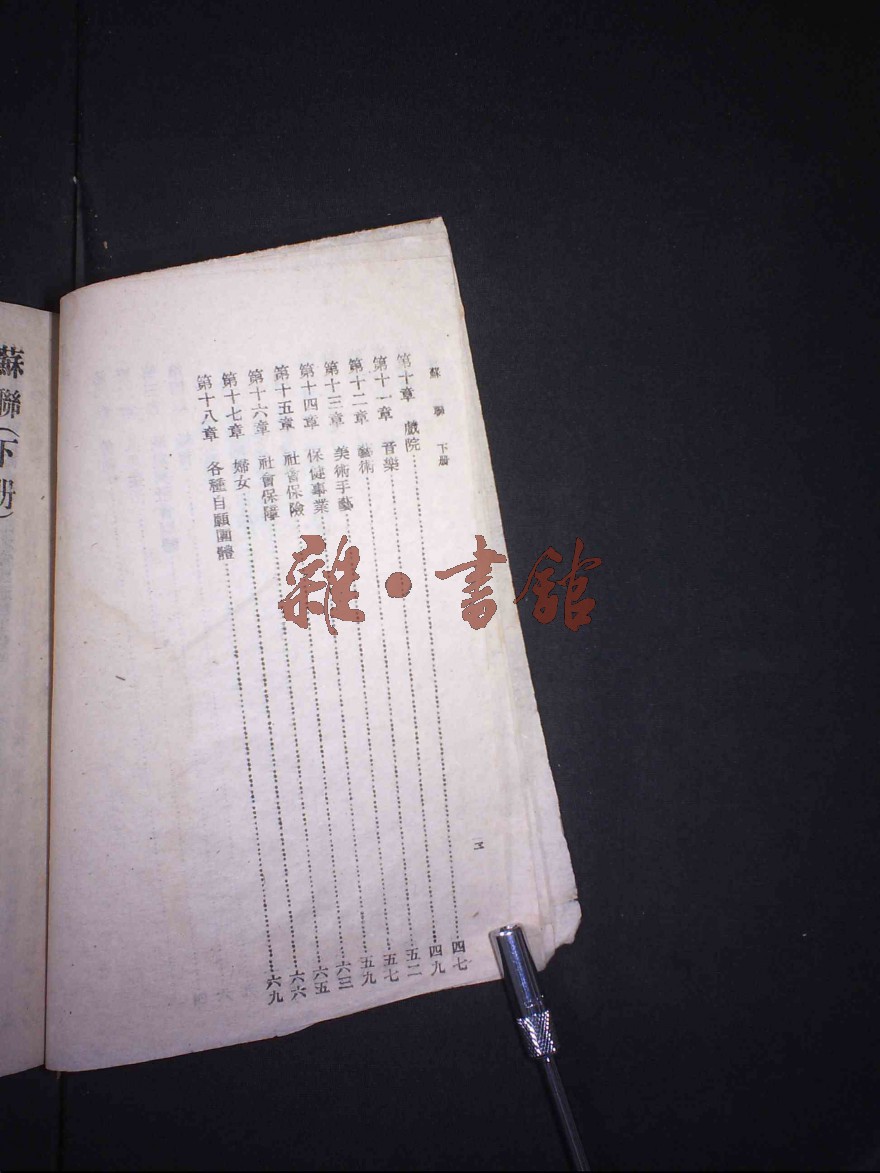 蘇聯 下册
第十章 戲院……四七
第十一章 音樂……四九
第十二章 藝術……五二
第十三章 美術手藝……五七
第十四章 保健事業……五九
第十五章 社會保險……六三
第十六章 社會保障……六五
第十七章 婦女……六六
第十八章 各種自願團體……六九
蘇聯(下册)
雜·書館